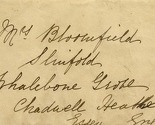 Mrs Bloomfield
Slinfold
Whalebone Grove
Chadwell Heath
Essex